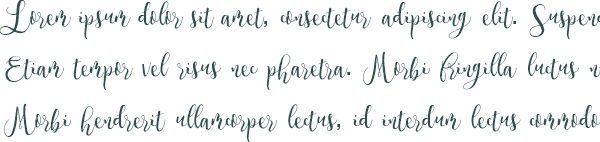 Lorem ipsum dolor sit amet, consectetur adipiscing elit. Suspen
Etiam tempor vel risus nec pharetra. Morbi fringilla luctus n
Morbi hendrerit ullamcorper lectus, id interdum lectus commodo